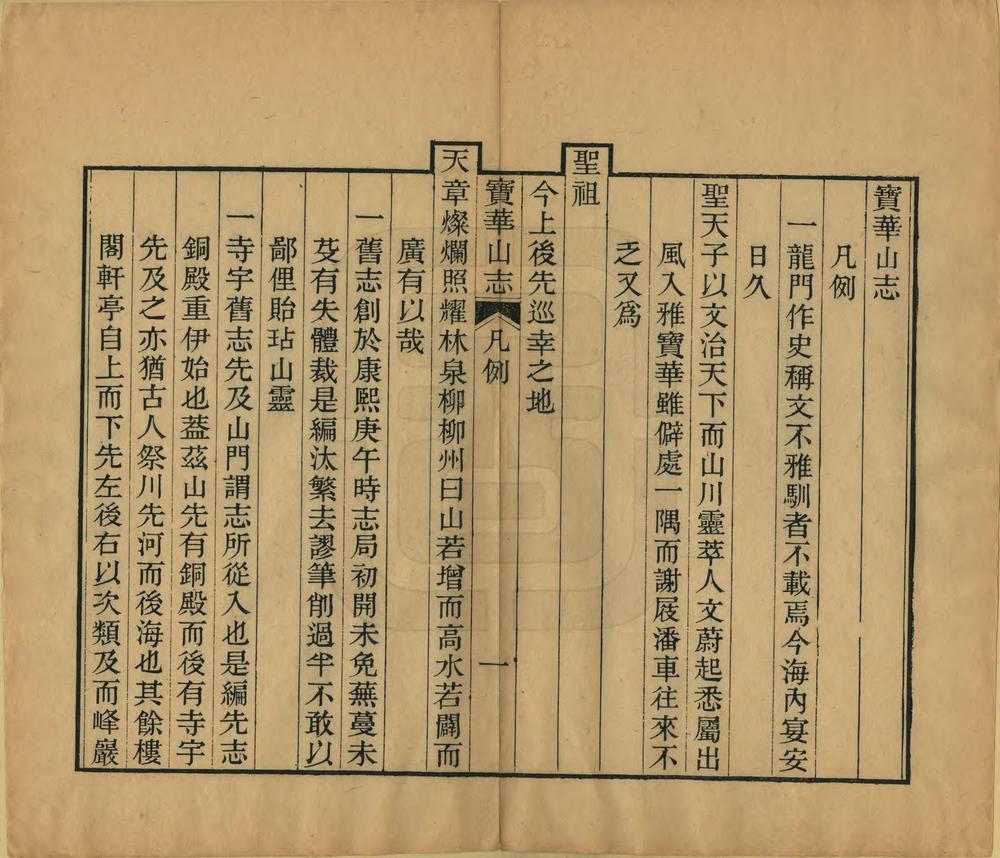 寶華山志
凡例
一龍門作史稱文不雅馴者不載焉今海內宴安
日久
聖天子以文治天下而山川靈萃人文蔚起悉屬出
風入雅寶華雖僻處一隅而謝屐潘車往來不
乏又為
聖祖
今上後先巡幸之地
寶華山志 凡例 一
天章燦爛照耀林泉柳柳州曰山若增而高水若闢而
廣有以哉
一舊志創於康熙庚午時志局初開未免蕪蔓未
芟有失體裁是編汰繁去謬筆削過半不敢以
鄙俚貽玷山靈
一寺宇舊志先及山門謂志所從入也是編先志
銅殿重伊始也蓋茲山先有銅殿而後有寺宇
先及之亦猶古人祭川先河而後海也其餘樓
閣軒亭自上而下先左後右以次類及而峰巖